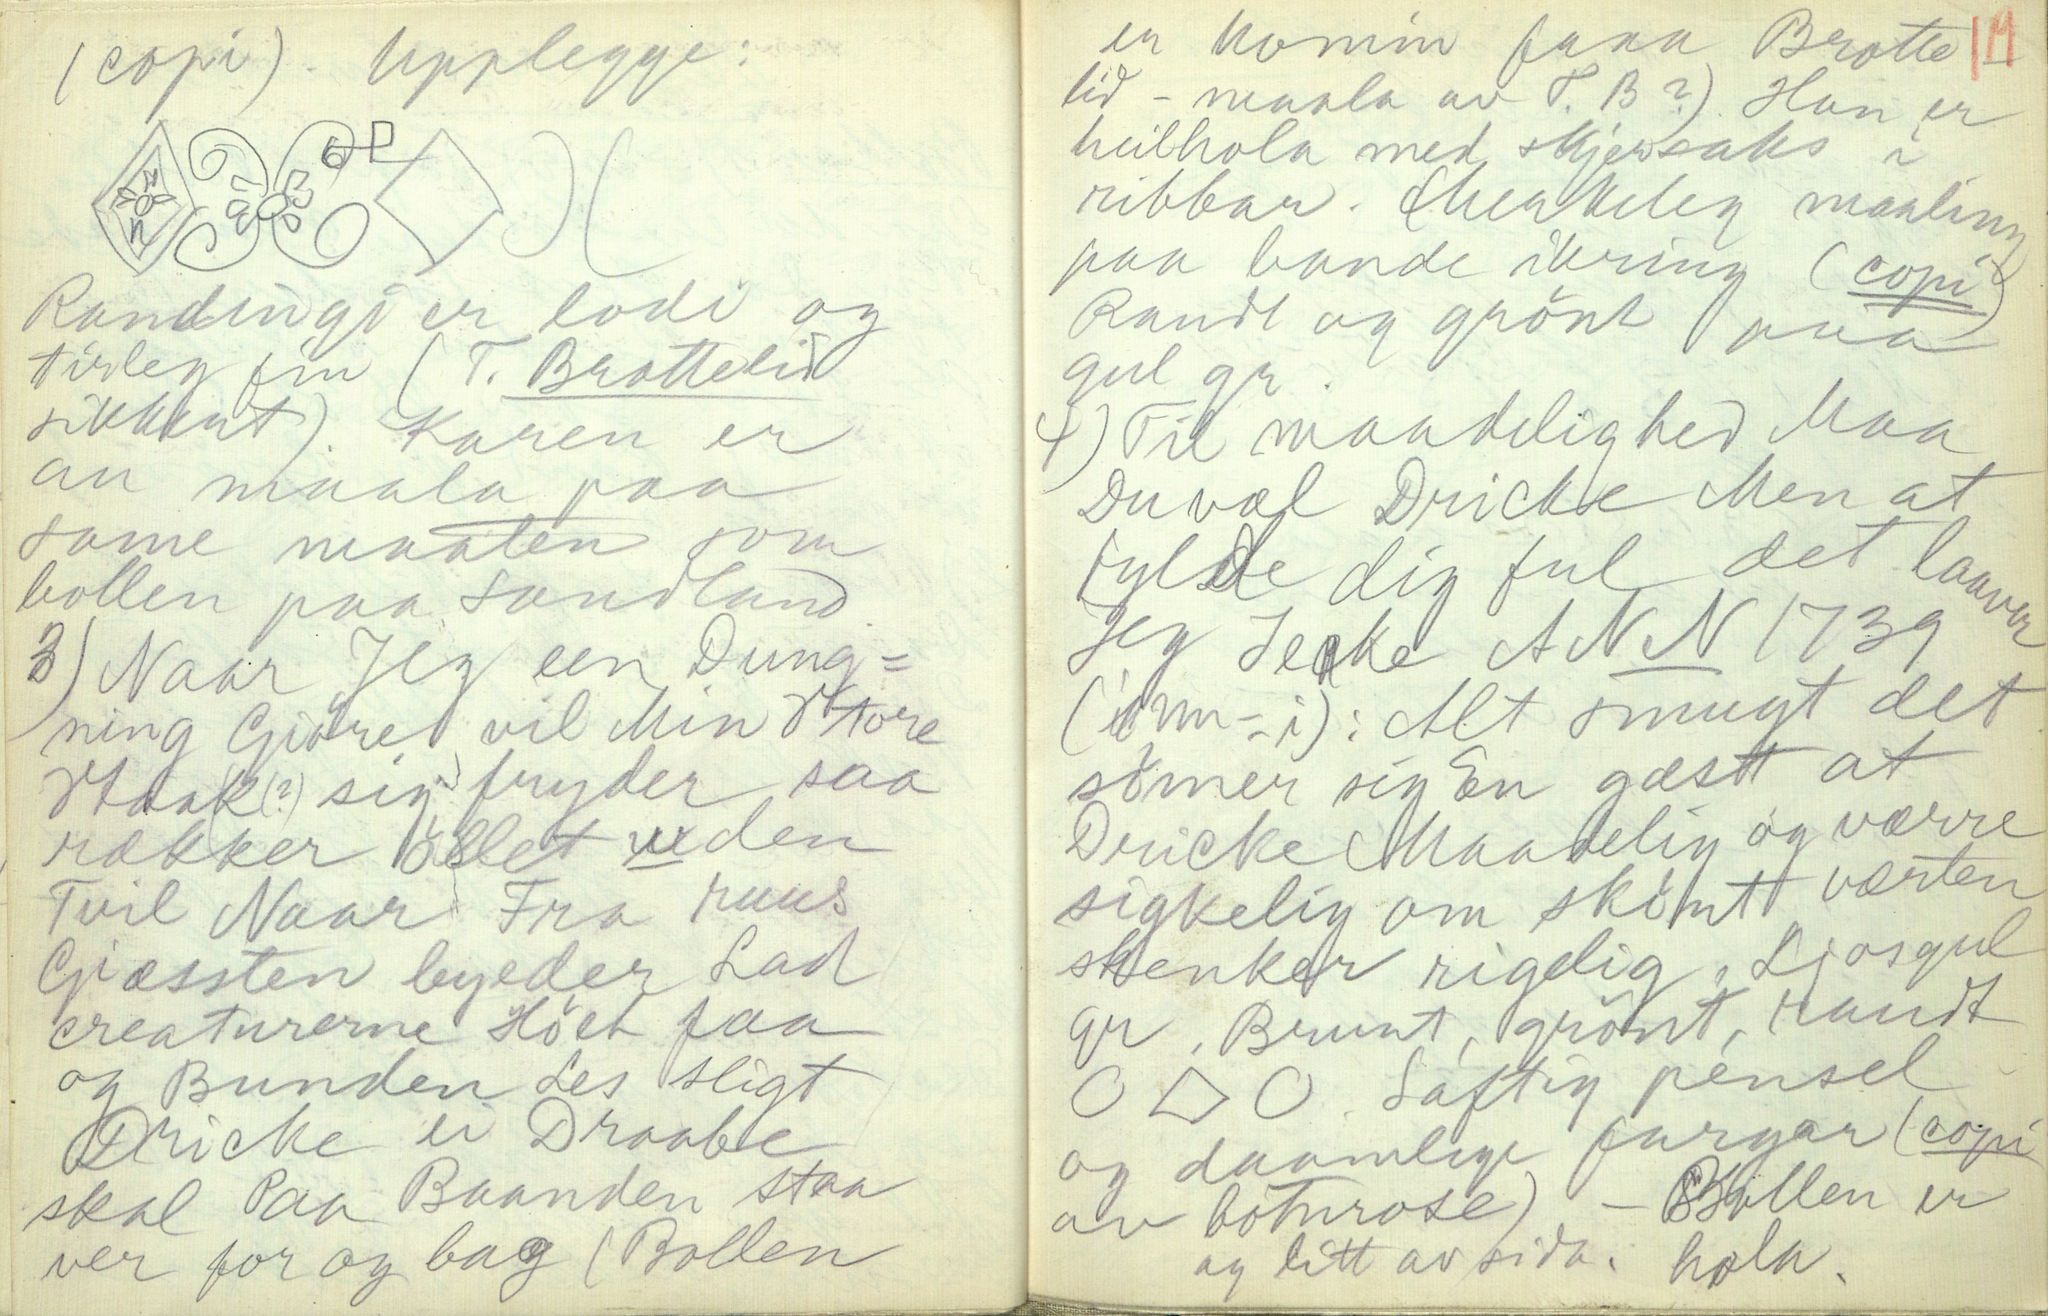 (copi). Upplegge:
Randingi er lodi og
tirleg fin (T. Brottelid
sikkert). Karen er
au maala paa
same maaten som
bollen paa Sandland
3) Naar Jeg een Dung=
ning Giöre vil Min Store
Haak(?) sig fryder saa
rækker öllet uden
Tvil Naar Fra ruus
Giæssten byeder Lad
creaturerne Höet faa
og Bunden Les sligt
Dricke ei Draabe
skal Paa Baanden staa
ver for og bag (Bollen
er komin fraa Brotte 19
lid - maala av T. B?) Han er
heilhola med skjersaks i
ribbar. Merkeleg maaling
paa bande ikring (copi)
Raudt og grönt paa
gul gr.
4) Til maadelighed Maa
Du væl Dricke Men at
fylde dig ful det laaver
Jeg Icke ANN 1739
(inn-i): Alt smugt det
sömer sig En gæst at
Dricke Maadelig og værre
sigkelig om skönt værten
skenker rigelig. Ljosgul
gr. Brunt, grönt, raudt
Saftig pensel
og daamlege fargar (copi
av botnrose) - Bollen er
og litt av sida. hola.